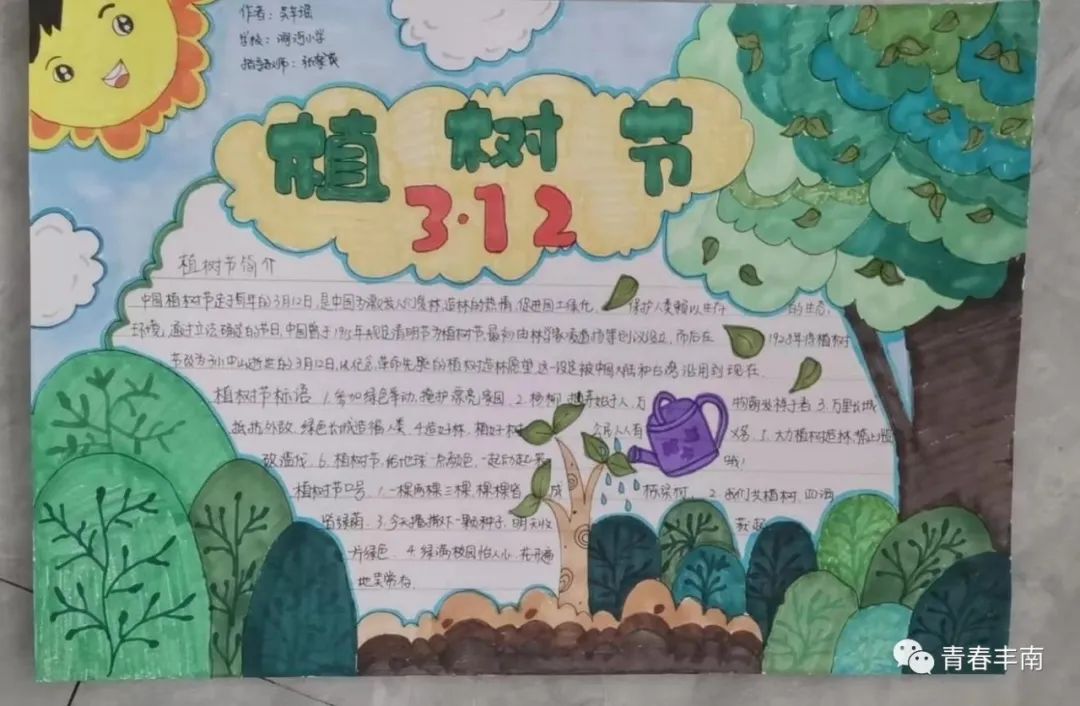 作者：
学校：小学
指导教师：张
植树节
3·12
植树节简介
中国植树节定于每年的3月12日，是中国为激发人们爱林、造林的热情，促进国土绿化，保护人类赖以生存的生态
环境，通过立法确定的节日。中国曾于1915年规定清明节为植树节，最初由林学家凌道扬等倡议设立，而后在1928年将植树
节改为孙中山逝世的3月12日，以纪念革命先驱的植树造林愿望，这一设定被中国大陆和台湾沿用到现在。
植树节标语 1.参加绿色行动，掩护漂亮家园 2.杨柳，万物萌发种子看 3.万里长城
抵抗外敌，绿色长城造福人类 4.造好林，植好树，人人有义务。5.大力植树造林，禁止
砍滥伐。6.植树节，给地球一点颜色，一起动起来哦！
植树节口号 1.一棵两棵三棵，棵棵皆成 2.我们共植树，四海
皆绿荫。3.今天播撒下一颗种子，明天收获起
一片绿色。4.绿满校园怡人心，花开遍
地笑常存。
青春丰南